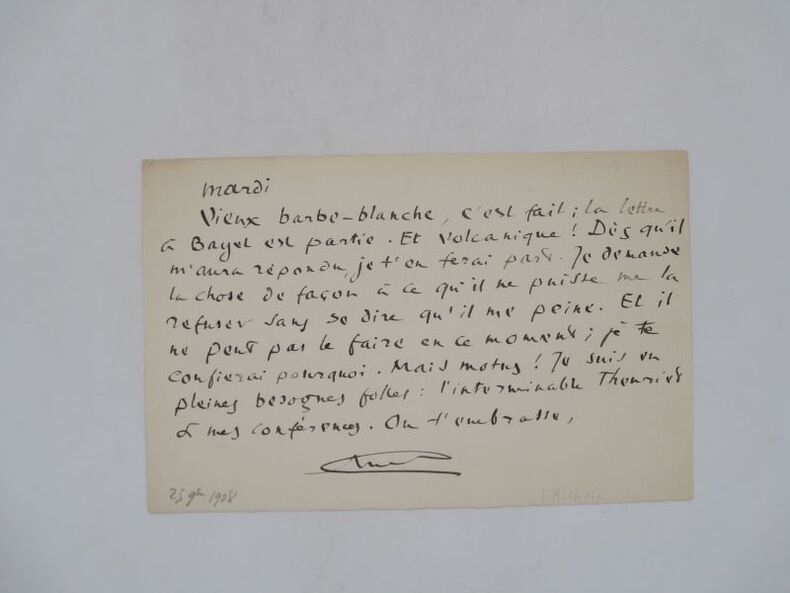 mardi
Vieux barbe-blanche, c'est fait ; la lettre
à Bayet est partie. Et volcanique ! Dès qu'il
m'aura répondu, je t'en ferai part. Je demande
la chose de façon à ce qu'il ne puisse me la
refuser sans se dire qu'il me peine. Et il
ne peut pas le faire en ce moment ; je te
confierai pourquoi. Mais motus ! Je suis en
pleines besognes folles : l'interminable Theuriet
& mes conférences. On t'embrasse,
25 9bre 1908